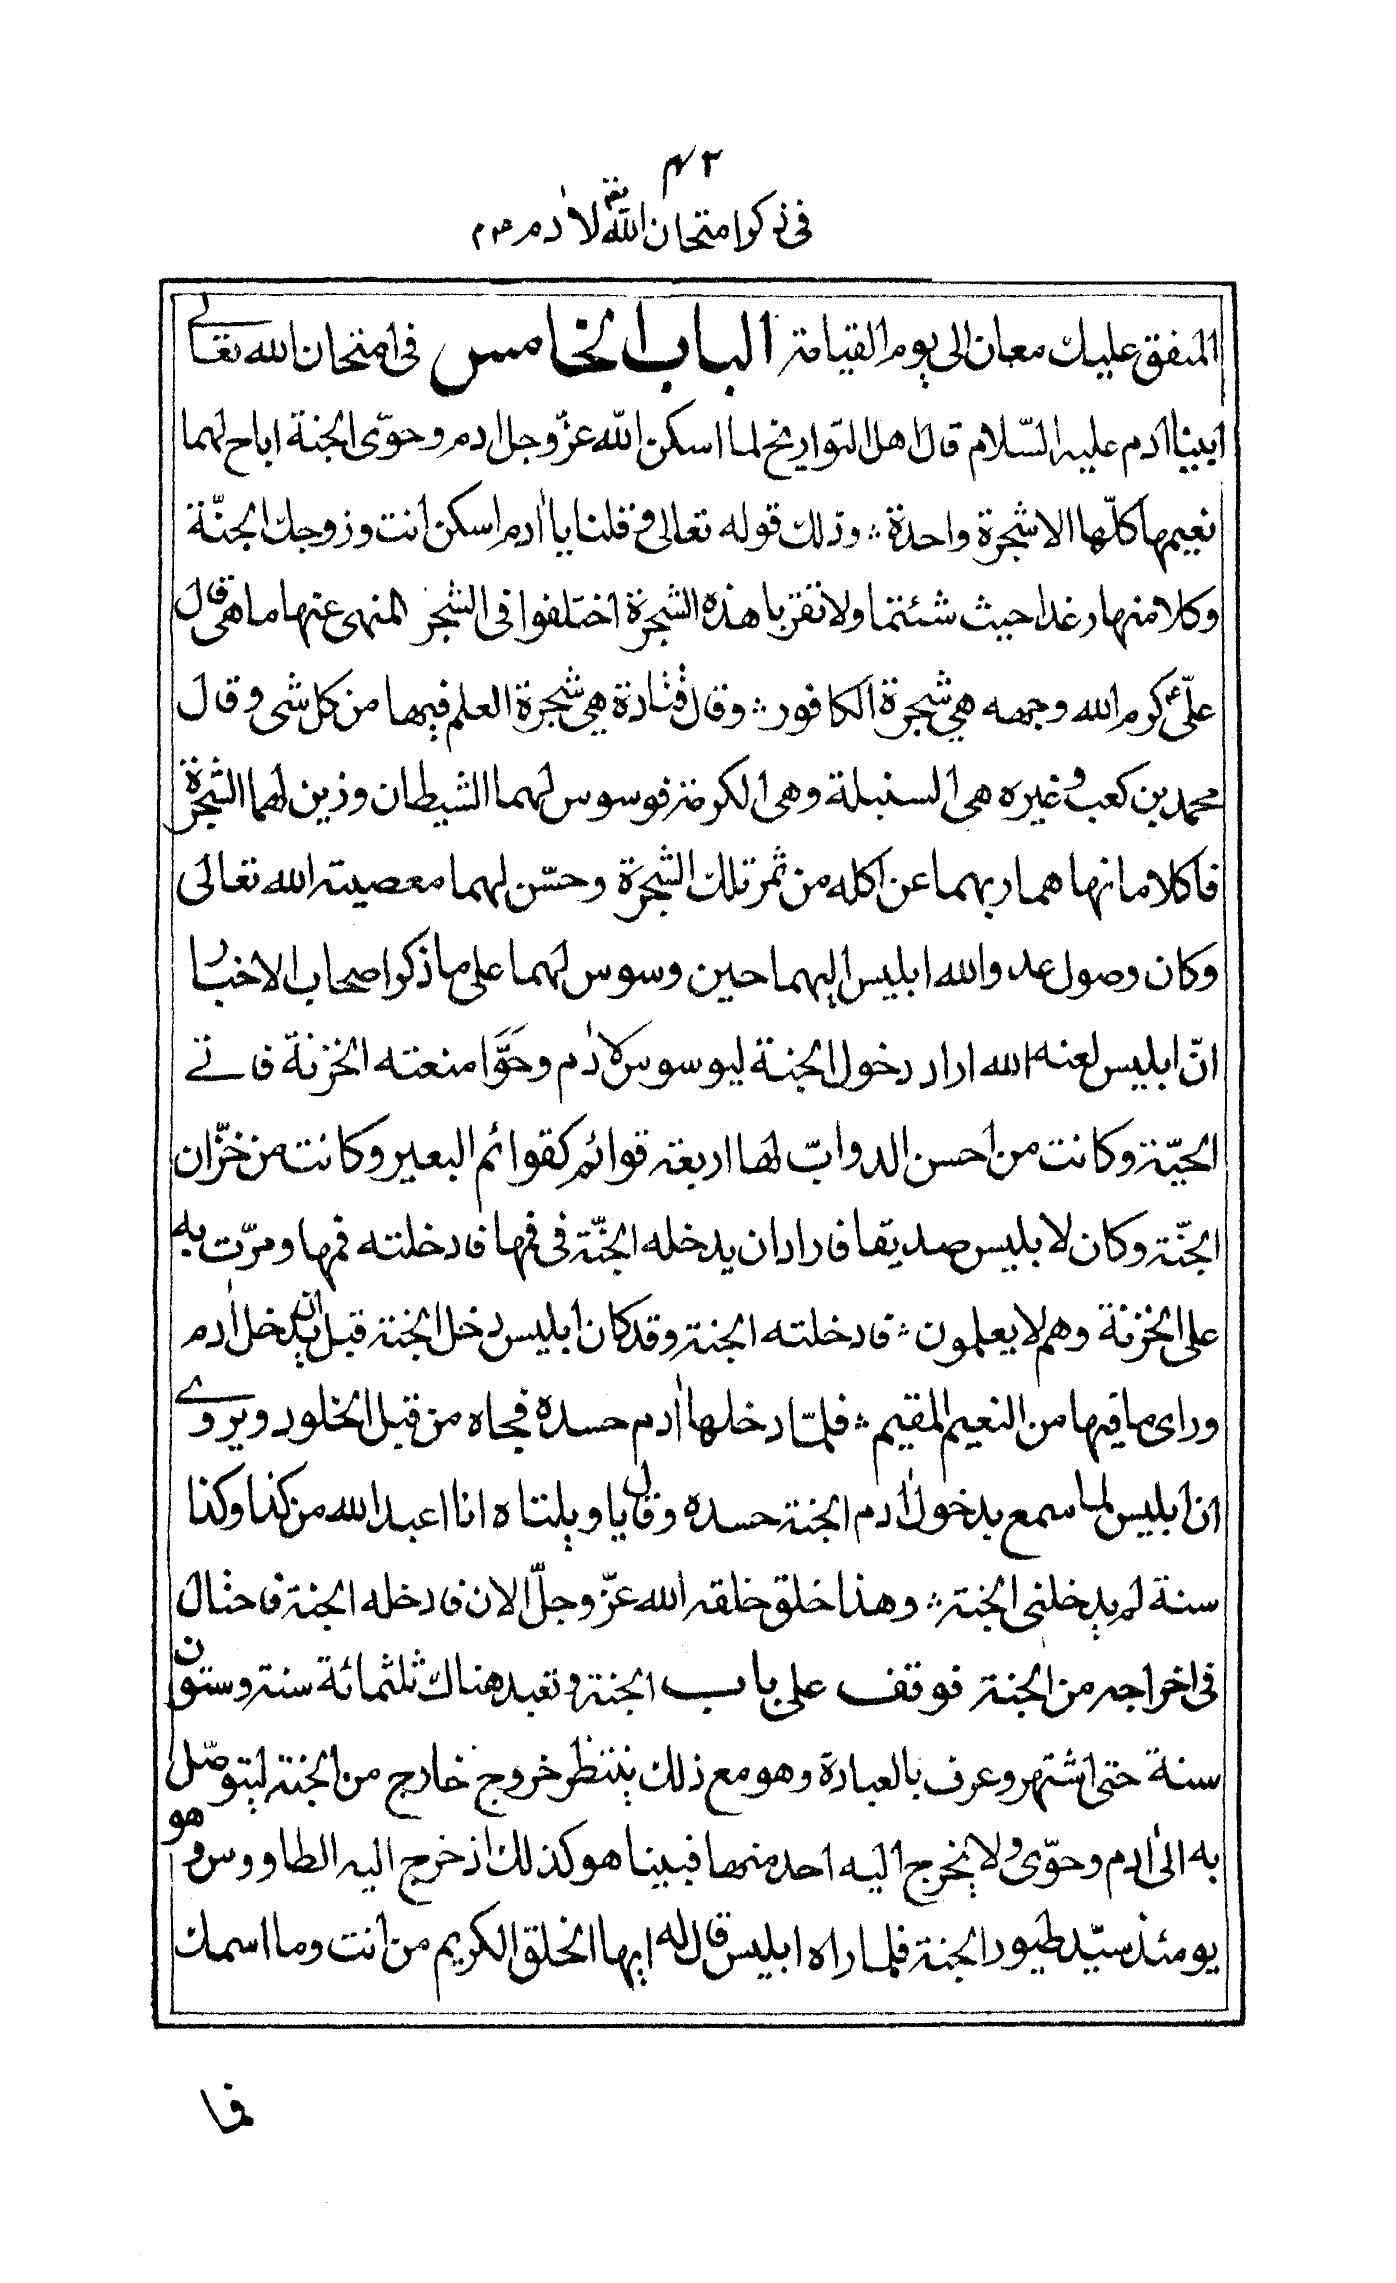 ٣٤
فى ذكر امتحان الله تعم لاٰدم عم
المنفق عليك معان الى يوم القيامة الباب الخامس فى امتحان الله تعالى
ابينا اٰدم عليه السّلام قال اهل التواريخ لما اسكن الله عزّ وجل ادم وحوّى الجنة اباح لهما
نعيمها كلّها الا شجرة واحدة ؞ وذلك قوله تعالى وقلنا يا اٰدم اسكن انت وزوجك الجنّة
وكلا منها رغدا حيث شئتما ولا تقربا هذه الشجرة اختلفوا فى الشجر المنهى عنها ما هى قال
علىّ كرم الله وجهه هي شجرة الكافور ؞ وقال قتادة هي شجرة العلم فيها من كل شى وقال
محمد بن كعب وغيره هى السنبلة وهى الكرمة فوسوس لهما الشيطان وزين لهما الشجرة
فاكلا ما نهاهما ربهما عن اكله من ثمر تلك الشجرة وحسّن لهما معصية الله تعالى
وكان وصول عدو الله ابليس اليهما حين وسوس لهما على ما ذكر اصحاب الاخبار
انّ ابليس لعنه الله اراد دخول الجنة ليوسوس لاٰدم وحَوَّا منعته الخزنة فاتى
الحيّة وكانت من احسن الدوابّ لها اربعة قوائم كقوائم البعير وكانت من خزّان
الجنّة وكان لابليس صديقا فاراد ان يدخله الجنّة فى فمها فادخلته فمها ومرّت به
على الخزنة وهم لا يعلمون ؞ فادخلته الجنة وقد كان ابليس دخل الجنة قبل ان يدخل اٰدم
وراى ما فيها من النعيم المقيم ؞ فلمّا دخلها اٰدم حسده فجاه من قبل الخلود ويروى
ان ابليس لما سمع بدخول اٰدم الجنة حسده وقال يا ويلتاه انا اعبد الله من كذا وكذا
سنة لم يدخلنى الجنة ؞ وهذا خلق خلقه الله عزّ وجلّ الان فادخله الجنة فاحتال
فى اخراجه من الجنة فوقف على باب الجنة وتعبد هناك ثلثمائة سنة وستون
سنة حتى اشتهر وعرف بالعبادة وهو مع ذلك ينتظر خروج خارج من الجنة ليتوصّل
به الى اٰدم وحوّى ولا يخرج اليه احد منها فبينا هو كذلك اذ خرج اليه الطاووس وهو
يومئذ سيّد طيور الجنة فلما راه ابليس قال له ايها الخلق الكريم من انت وما اسمك
فما